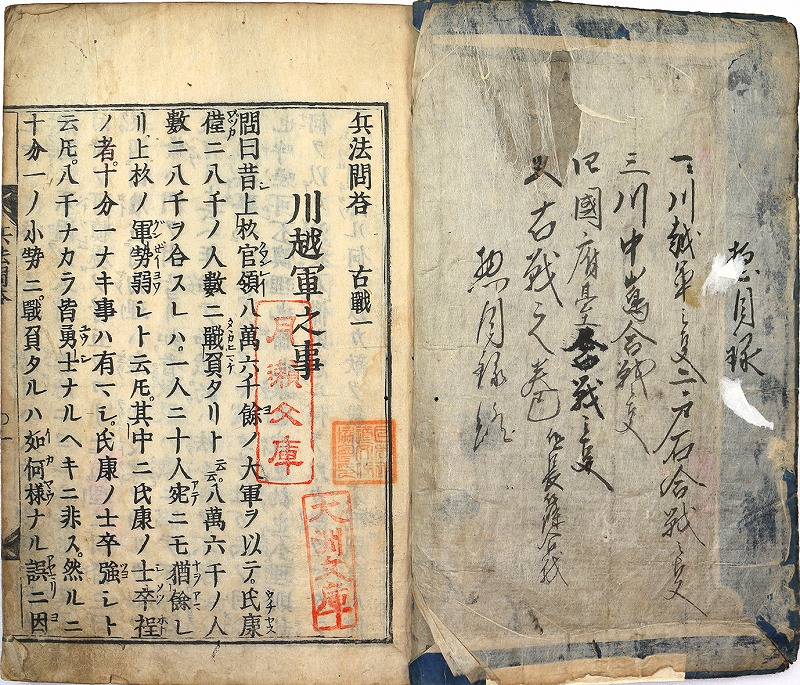 惣目録
一川越軍之事 二戸石合戦之事
三川中嶌合戦之事
四國府臺合戦之事 五長篠合戦
右戦之巻
惣目録終
兵法問答 古戰一
川越軍之事
問曰昔上杦官領八萬六千餘ノ大軍ヲ以テ。氏康
僅ニ八千ノ人數ニ戰負タリト云云。八萬六千ノ人
數ニ八千ヲ合スレハ。一人ニ十人宛ニモ猶餘レ
リ。上杦ノ軍勢弱シト云𪜈。其中ニ氏康ノ士卒程
ノ者。十分一ナキ事ハ有マシ。氏康ノ士卒強シト
云𪜈。八千ナカラ皆勇士ナルヘキニ非ス。然ルニ
十分一ノ小勢ニ戰負タルハ如何様ナル誤ニ因
月瀬文庫
大渕文庫
兵法問答